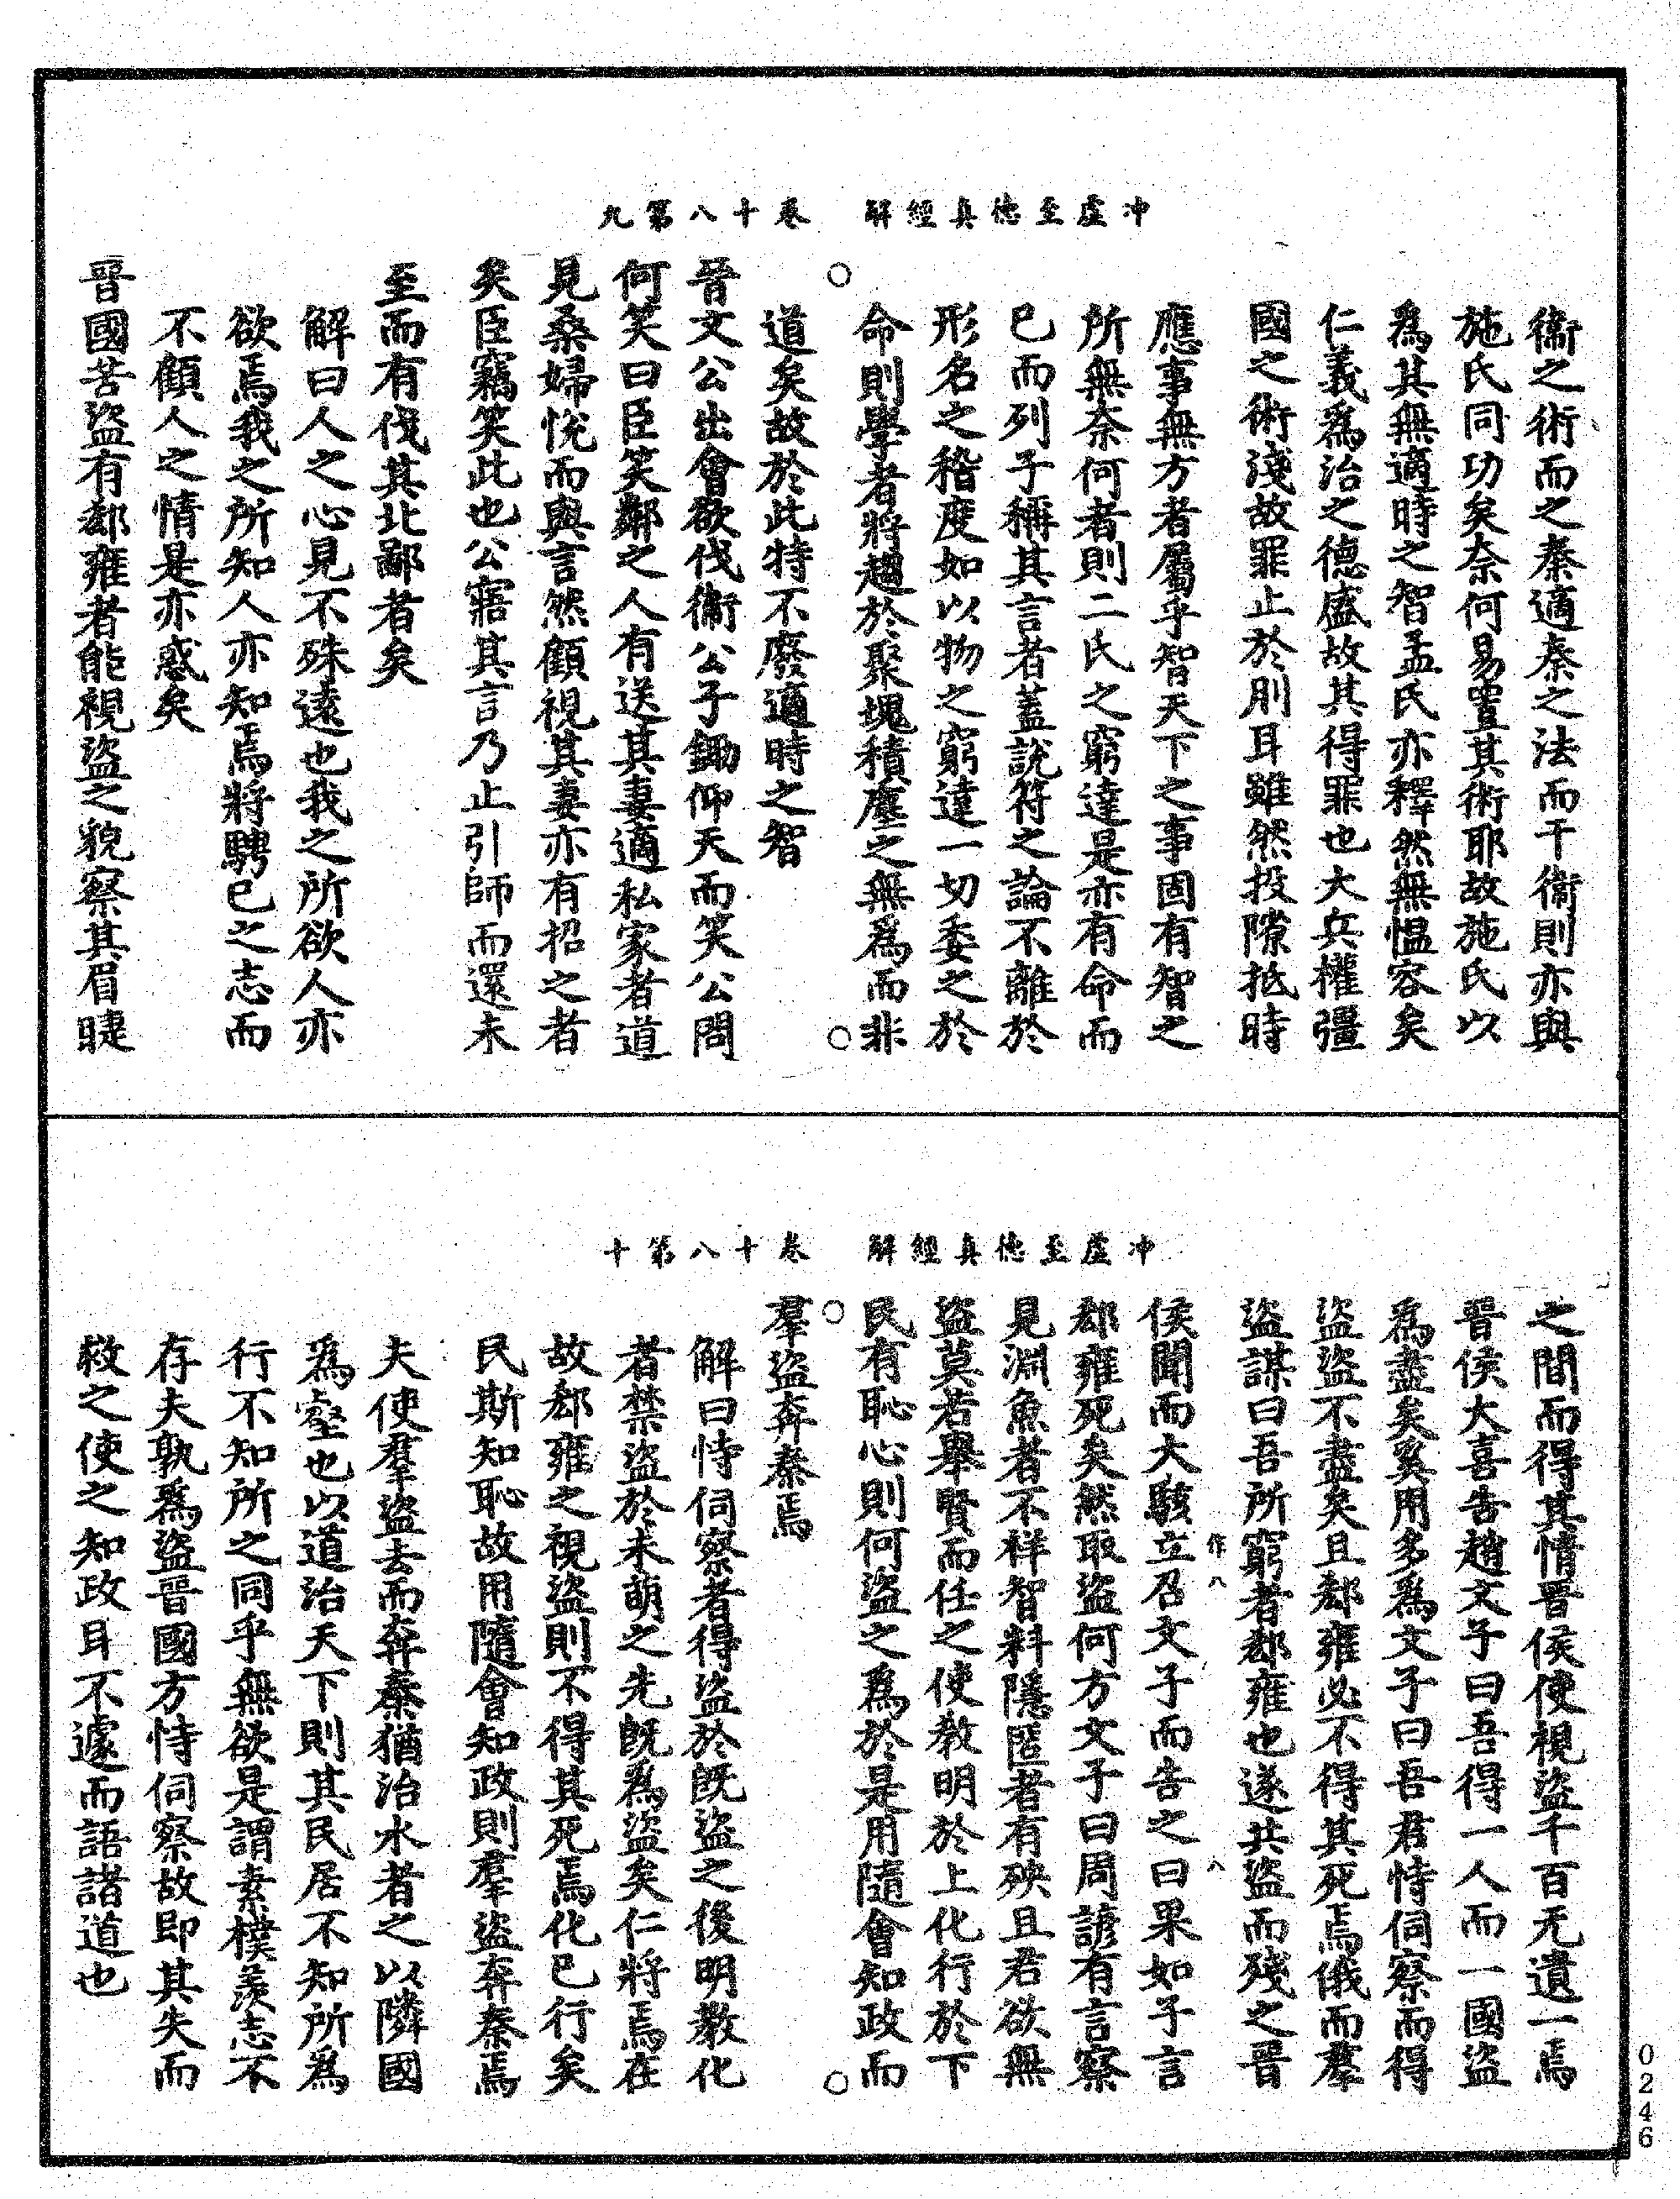 冲虛至德真經解　卷十八第九
衞之術而之秦適秦之法而干衞則亦與
施氏同功矣奈何易置其術耶故施氏以
爲其無適時之智孟氏亦釋然無愠容矣
仁義爲治之德盛故其得罪也大兵權彊
國之術淺故罪止於刖耳雖然投隙抵時
應事無方者屬乎智天下之事固有智之
所無奈何者則二氏之窮達是亦有命而
已而列子稱其言者蓋說符之論不離於
形名之稽度如以物之窮達一切委之於
命則學者將趨於聚塊積塵之無爲而非
道矣故於此特不廢適時之智
晉文公出會欲伐衞公子鋤仰天而笑公問
何笑曰臣笑鄰之人有送其妻適私家者道
見桑婦悅而與言然顧視其妻亦有招之者
矣臣竊笑此也公寤其言乃止引師而還未
至而有伐其北鄙者矣
解曰人之心見不殊遠也我之所欲人亦
欲焉我之所知人亦知焉將騁已之志而
不顧人之情是亦惑矣
晉國苦盜有郄雍者能視盜之貌察其眉睫
冲虛至德真經解　卷十八第十
之間而得其情晉侯使視盜千百无遺一焉
晉侯大喜告趙文子曰吾得一人而一國盜
爲盡矣奚用多爲文子曰吾君恃伺察而得
盜盜不盡矣且郄雍必不得其死焉俄而羣
盜謀曰吾所窮者郄雍也遂共盜而殘之晉
侯聞而大駭立召文子而告之曰果如子言
郄雍死矣然取盜何方文子曰周諺有言察
見淵魚者不祥智料隱匿者有殃且君欲無
盜莫若舉賢而任之使教明於上化行於下
民有恥心則何盜之爲於是用隨會知政而
羣盜奔秦焉
解曰恃伺察者得盜於旣盜之後明教化
者禁盜於未萌之先旣爲盜矣仁將焉在
故郄雍之視盜則不得其死焉化已行矣
民斯知恥故用隨會知政則羣盜奔秦焉
夫使羣盜去而奔秦猶治水者之以隣國
爲壑也以道治天下則其民居不知所爲
行不知所之同乎無欲是謂素樸羨志不
存夫孰爲盜晉國方恃伺察故即其失而
救之使之知政耳不遽而語諸道也
作八
八
0246